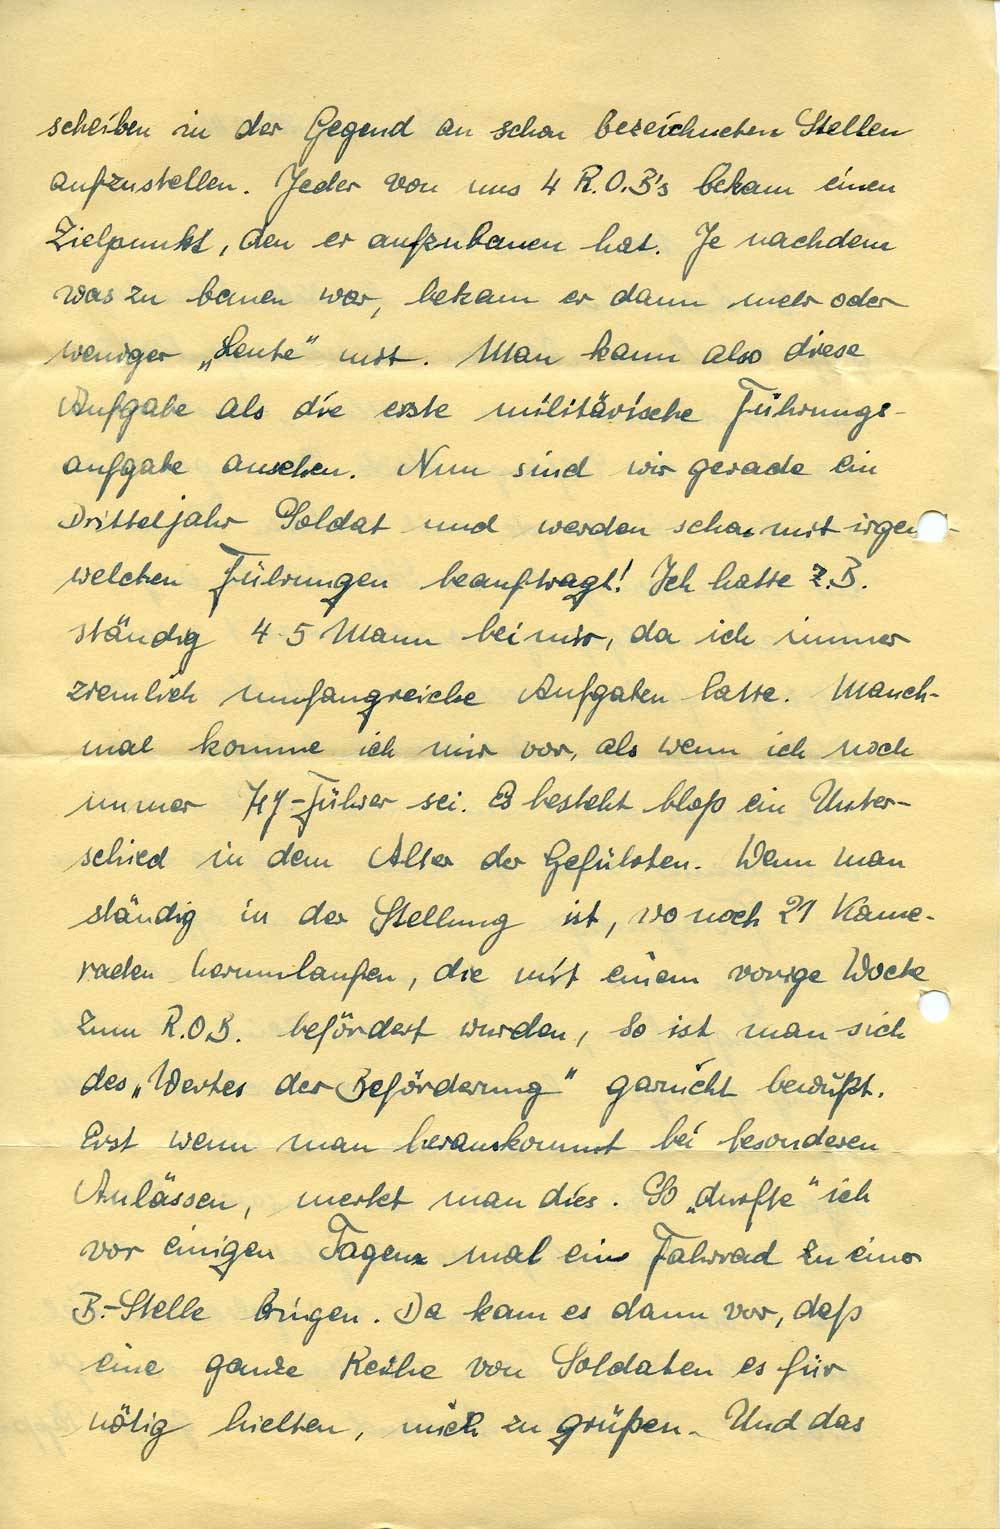 scheiben in der Gegend an schon bezeichneten Stellen
aufzustellen. Jeder von uns 4 R.O.B's bekam einen
Zielpunkt, den er aufzubauen hat. Je nachdem
was zu bauen war, bekam er dann mehr oder
weniger „Leute" mit. Man kann also diese
Aufgabe als die erste militärische Führungs-
aufgabe ansehen. Nun sind wir gerade ein
Dritteljahr Soldat und werden schon mit irgen-
welchen Führungen beauftragt! Ich hatte z.B.
ständig 4-5 Mann bei mir, da ich immer
ziemlich umfangreiche Aufgaben hatte. Manch-
mal komme ich mir vor, als wenn ich noch
immer HJ-Führer sei. Es besteht bloß ein Unter-
schied in dem Alter der Geführten. Wenn man
ständig in der Stellung ist, wo noch 21 Kame-
raden herumlaufen, die mit einem vorige Woche
zum R.O.B. befördert wurden, so ist man sich
des „Wertes der Beförderung" garnicht bewußt.
Erst wenn man herauskommt bei besonderen
Anlässen, merket man dies. So „durfte" ich
vor einigen Tagen mal ein Fahrrad zu einer
B.-Stelle bringen. Da kam es dann vor, daß
eine ganze Reihe von Soldaten es für
nötig hielten, mich zu grüßen. Und das